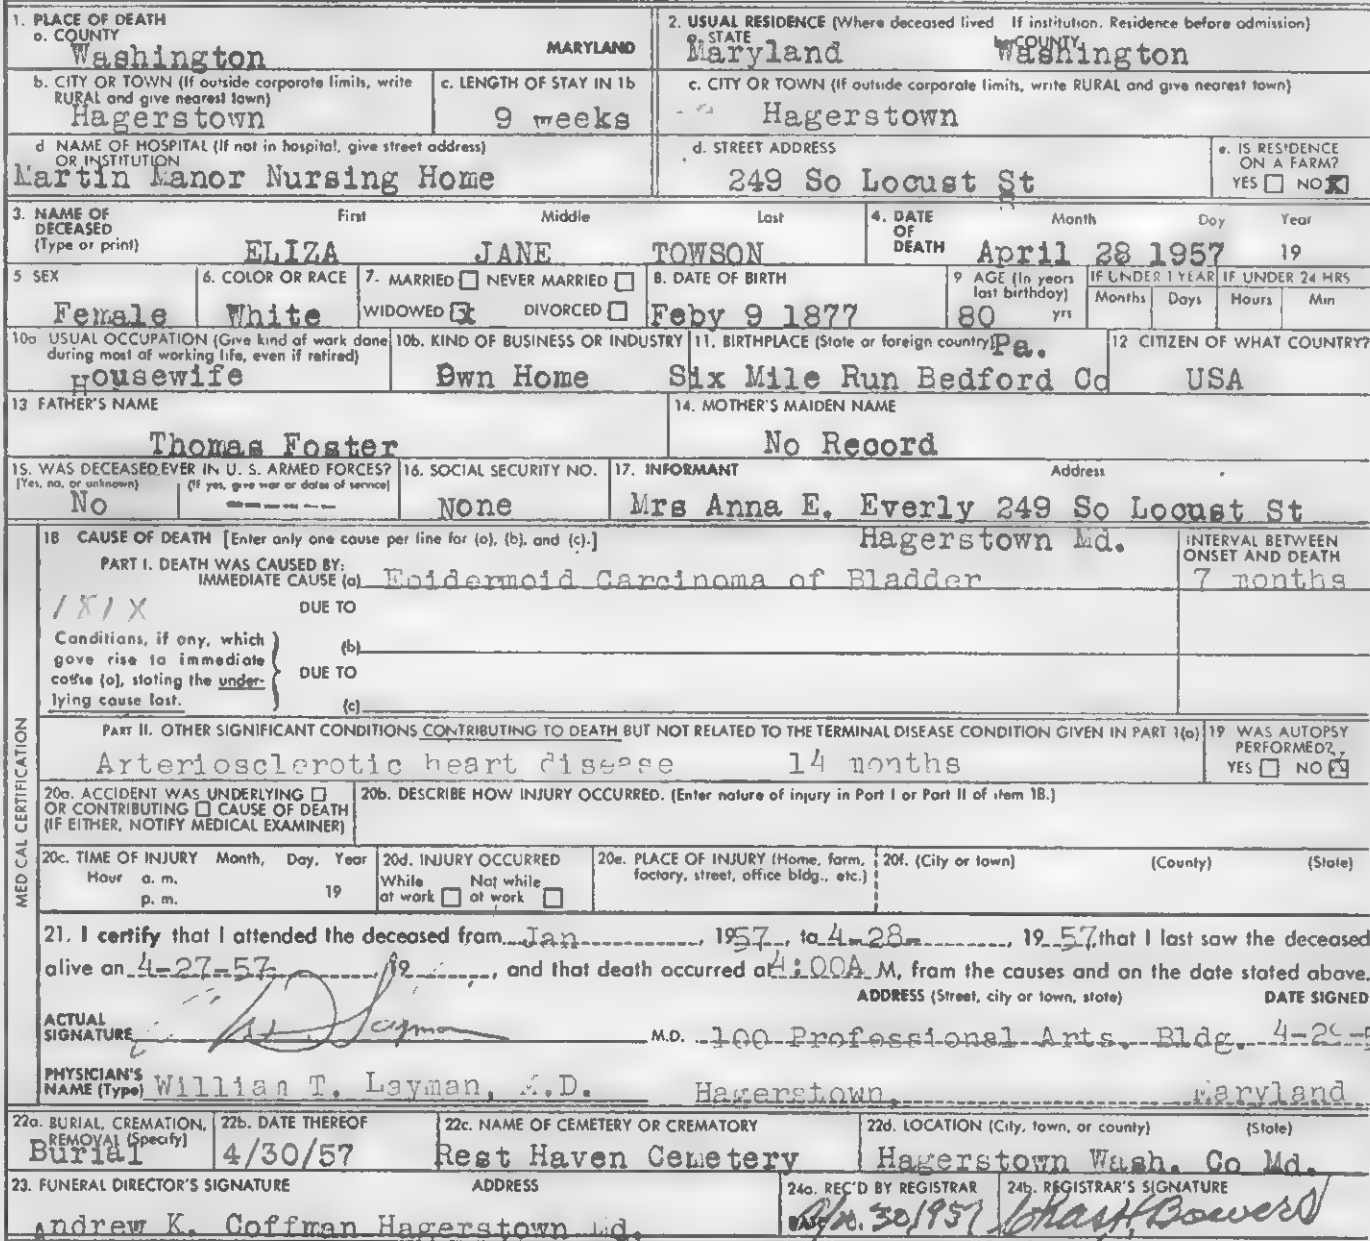 1. PLACE OF DEATH
a. COUNTY
Washington MARYLAND
2. USUAL RESIDENCE (Where deceased lived If institution. Residence before admission)
a. STATE
Maryland
b. COUNTY
Washington
b. CITY OR TOWN (If outside corporate limits, write RURAL and give nearest town)
Hagerstown
c. LENGTH OF STAY IN 1b
9 weeks
c. CITY OR TOWN (If outside corporate limits, write RURAL and give nearest town)
Hagerstown
d NAME OF HOSPITAL (If not in hospital, give street address)
OR INSTITUTION
Martin Manor Nursing Home
d. STREET ADDRESS
249 So Locust St
e. IS RESIDENCE
ON A FARM?
YES NO X
3. NAME OF
DECEASED
(Type or print)
First Middle Last
ELIZA JANE TOWSON
4. DATE
OF
DEATH
Month Day Year
April 28 1957 19
5 SEX
Female
6. COLOR OR RACE
White
7. MARRIED NEVER MARRIED
WIDOWED X DIVORCED
8. DATE OF BIRTH
Feby 9 1877
9 AGE (In years
last birthday)
80 yrs
IF UNDER 1 YEAR
Months Days
IF UNDER 24 HRS
Hours Min
10a USUAL OCCUPATION (Give kind of work done
during most of working life, even if retired)
Housewife
10b. KIND OF BUSINESS OR INDUSTRY
Own Home
11. BIRTHPLACE (State or foreign country) Pa.
Six Mile Run Bedford Co
12 CITIZEN OF WHAT COUNTRY?
USA
13 FATHER'S NAME
Thomas Foster
14. MOTHER'S MAIDEN NAME
No Record
15. WAS DECEASED EVER IN U. S. ARMED FORCES?
(Yes, no, or unknown) (If yes, give war or dates of service)
No ------
16. SOCIAL SECURITY NO.
None
17. INFORMANT Address
Mrs Anna E. Everly 249 So Locust St
Hagerstown Md.
18 CAUSE OF DEATH [Enter only one cause per line for (a), (b), and (c).]
INTERVAL BETWEEN
ONSET AND DEATH
PART I. DEATH WAS CAUSED BY:
IMMEDIATE CAUSE (a) Epidermoid Carcinoma of Bladder 7 months
181X
DUE TO
Conditions, if any, which
gave rise to immediate
cause (a), stating the under-
lying cause last.
(b)
DUE TO
(c)
MEDICAL CERTIFICATION
PART II. OTHER SIGNIFICANT CONDITIONS CONTRIBUTING TO DEATH BUT NOT RELATED TO THE TERMINAL DISEASE CONDITION GIVEN IN PART 1(a)
Arteriosclerotic heart disease 14 months
19 WAS AUTOPSY
PERFORMED?
YES NO X
20a. ACCIDENT WAS UNDERLYING
OR CONTRIBUTING CAUSE OF DEATH
(IF EITHER, NOTIFY MEDICAL EXAMINER)
20b. DESCRIBE HOW INJURY OCCURRED. (Enter nature of injury in Part I or Part II of item 18.)
20c. TIME OF INJURY Month, Day, Year
Hour a. m.
p. m. 19
20d. INJURY OCCURRED
While Not while
at work at work
20e. PLACE OF INJURY (Home, farm,
factory, street, office bldg., etc.)
20f. (City or town) (County) (State)
21. I certify that I attended the deceased from Jan 1957, to 4-28- 1957 that I last saw the deceased
alive on 4-27-57 , 19 , and that death occurred at 4:00A M, from the causes and on the date stated above.
ADDRESS (Street, city or town, state) DATE SIGNED
ACTUAL
SIGNATURE Layman M.D. 100 Professional Arts. Bldg.
PHYSICIAN'S
NAME (Type) William T. Layman, M.D. Hagerstown, Maryland
22a. BURIAL, CREMATION,
REMOVAL (Specify)
Burial
22b. DATE THEREOF
4/30/57
22c. NAME OF CEMETERY OR CREMATORY
Rest Haven Cemetery
22d. LOCATION (City, town, or county) (State)
Hagerstown Wash. Co Md.
23. FUNERAL DIRECTOR'S SIGNATURE ADDRESS
Andrew K. Coffman Hagerstown Md.
24a. REC'D BY REGISTRAR
DATE 30/1957
24b. REGISTRAR'S SIGNATURE
Chas H Bowers